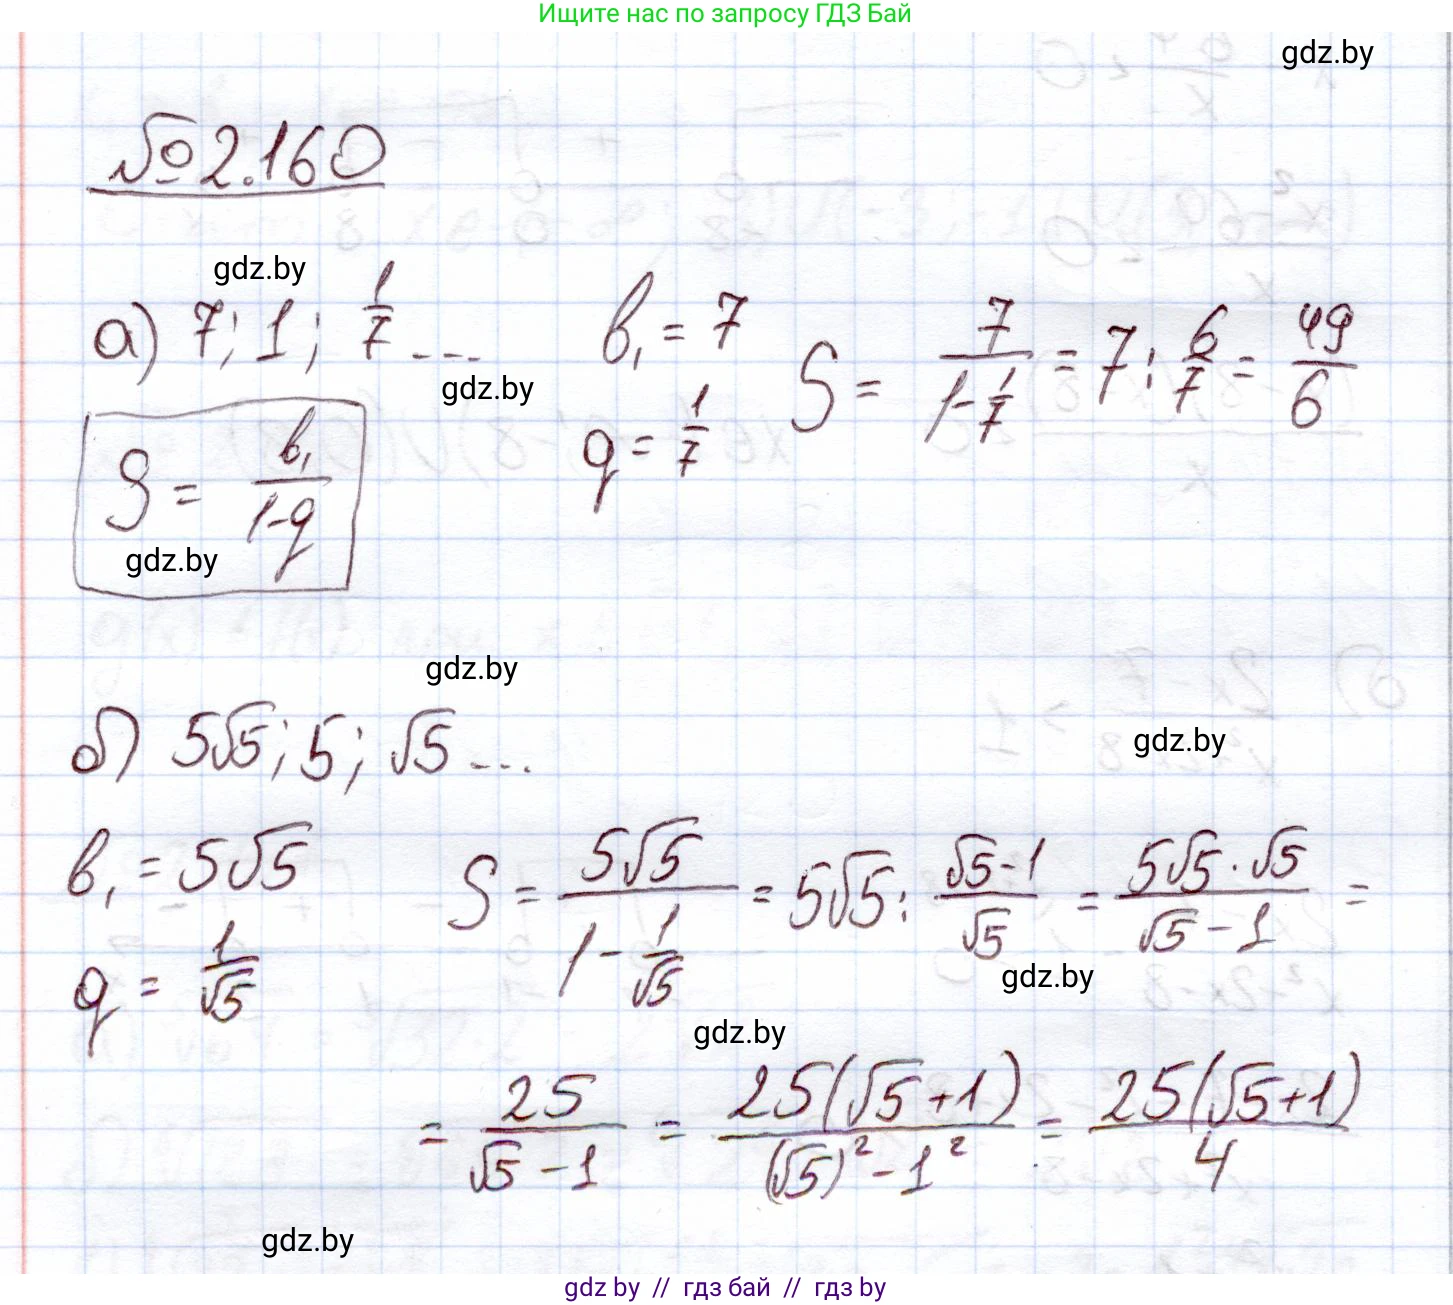 Ищите нас по запросу ГДЗ Бай
gdz.by
№2.160
gdz.by
а) 7; 1; 1/7 ...
b₁ = 7
S = 7/(1-1/7) = 7 : 6/7 = 49/6
gdz.by
q = 1/7
S = b₁/(1-q)
gdz.by
gdz.by
б) 5√5; 5; √5 ...
gdz.by
b₁ = 5√5
S = 5√5/(1 - 1/√5) = 5√5 : (√5-1)/√5 = (5√5·√5)/(√5-1) =
q = 1/√5
gdz.by
gdz.by
= 25/(√5-1) = 25(√5+1)/((√5)²-1²) = 25(√5+1)/4
gdz.by
gdz by // гдз бай // гдз by